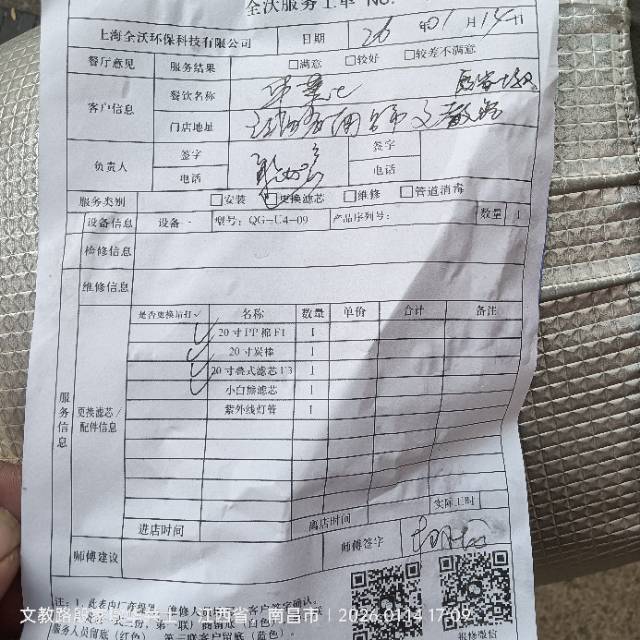 全沃服务工单 No.
上海全沃环保科技有限公司 日期 26 年 01 月 14 日
餐厅意见 服务结果 □满意 □较好 □较差不满意
客户信息 餐饮名称
门店地址 江西省
负责人 签字 签字
电话 电话
服务类别 □安装 □更换滤芯 □维修 □管道消毒
设备信息 设备 型号: QG-U4-09 产品序列号: 数量 1
检修信息
维修信息
服务信息
更换滤芯/配件信息
是否更换后打√ 名称 数量 单价 合计 备注
√ 20寸PP棉F1 1
√ 20寸炭棒 1
√ 20寸叠式滤芯U3 1
√ 小白鲸滤芯 1
紫外线灯管 1
实际工时
进店时间 离店时间
师傅建议 师傅签字
服务人员留底(红色) 第三联客户留底(蓝色).
江西省,南昌市 | 2026.01.14 17:09
报修微信